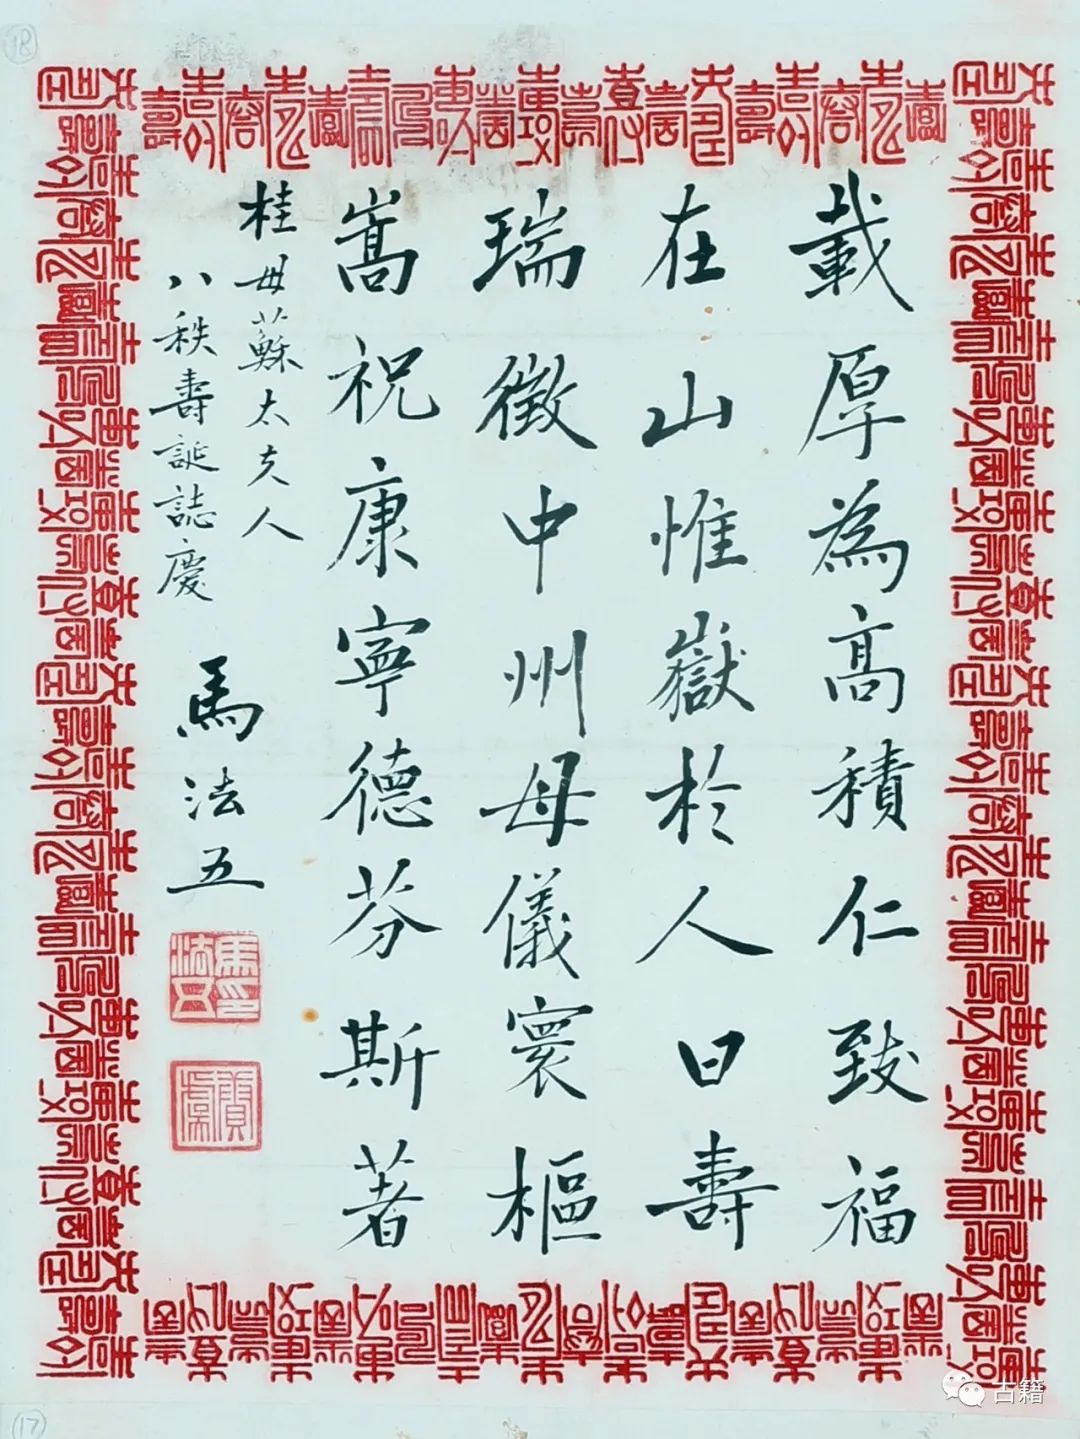 載厚為高積仁致福
在山惟嶽於人曰壽
瑞徵中州母儀寰樞
嵩祝康寧德芬斯著
桂母蘇太夫人
八秩壽誕誌慶
馬法五
馬法五印
古籍
18
17